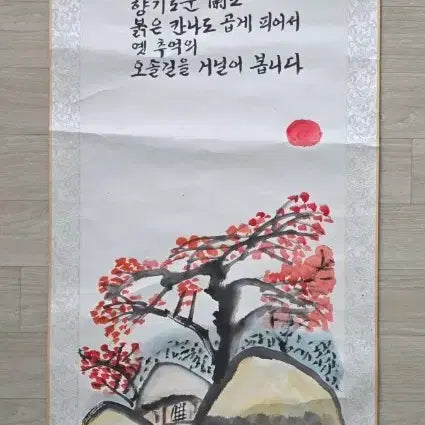 향기로운
붉은 칸나도 곱게 피어서
옛 추억의
오솔길을 거닐어 봅니다